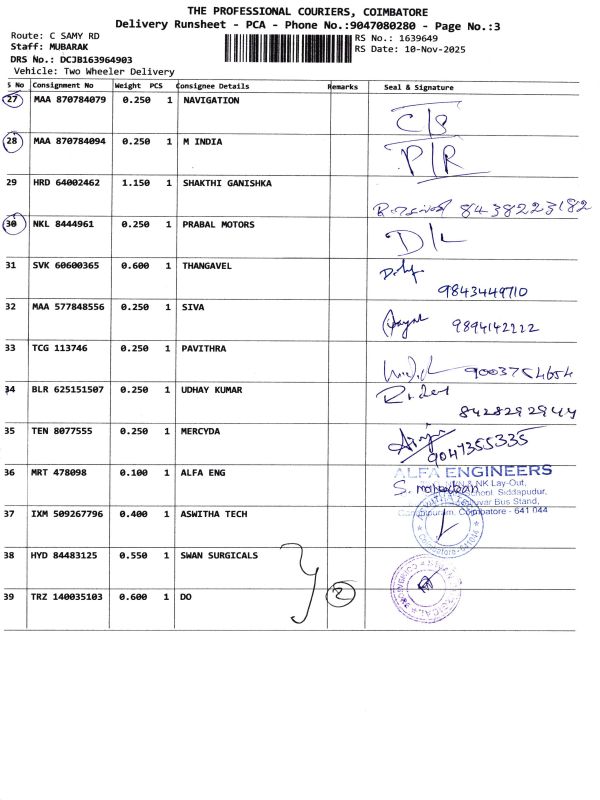 THE PROFESSIONAL COURIERS, COIMBATORE
Delivery Runsheet - PCA - Phone No.:9047080280 - Page No.:3
Route: C SAMY RD
Staff: MUBARAK
DRS No.: DCJB163964903
Vehicle: Two Wheeler Delivery
RS No.: 1639649
RS Date: 10-Nov-2025
S No Consignment No Weight PCS Consignee Details Remarks Seal & Signature
27 MAA 870784079 0.250 1 NAVIGATION C/B
28 MAA 870784094 0.250 1 M INDIA P/R
29 HRD 64002462 1.150 1 SHAKTHI GANISHKA 8438223182
30 NKL 8444961 0.250 1 PRABAL MOTORS D/L
31 SVK 60600365 0.600 1 THANGAVEL 9843449710
32 MAA 577848556 0.250 1 SIVA 9894142222
33 TCG 113746 0.250 1 PAVITHRA 9003754654
34 BLR 625151507 0.250 1 UDHAY KUMAR 8428292944
35 TEN 8077555 0.250 1 MERCYDA 9047355335
36 MRT 478098 0.100 1 ALFA ENG ALFA ENGINEERS
NK Lay-Out,
Siddapudur,
Bus Stand,
Coimbatore - 641 044
37 IXM 509267796 0.400 1 ASWITHA TECH
38 HYD 84483125 0.550 1 SWAN SURGICALS
39 TRZ 140035103 0.600 1 DO 2